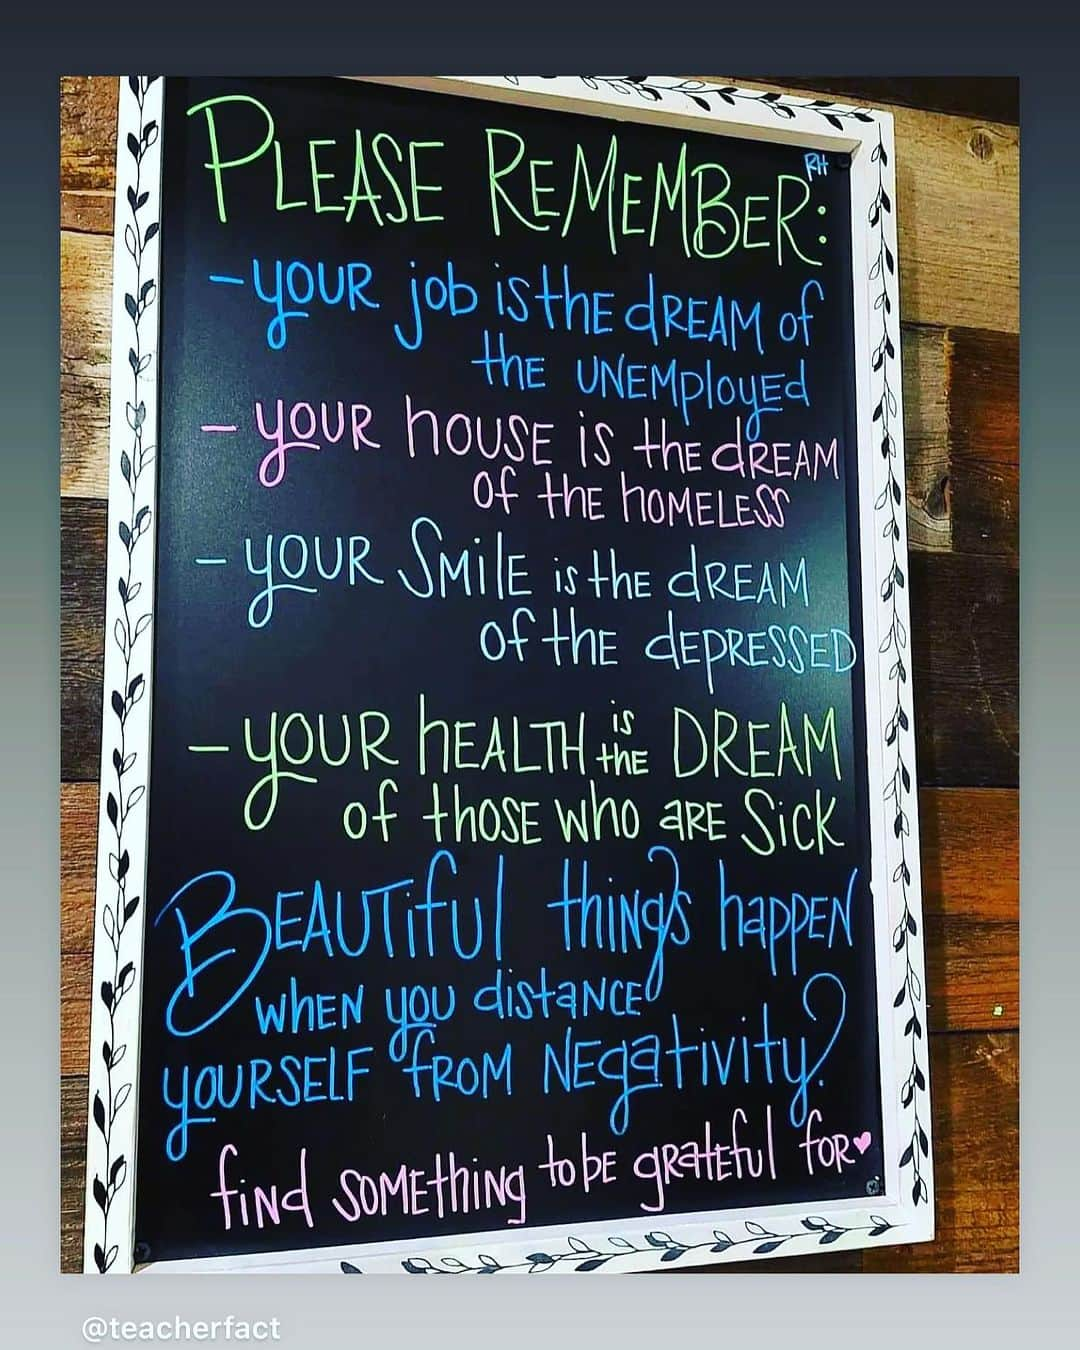 PLEASE REMEMBER:
RH
- YOUR job is the DREAM of
the UNEMployed
- YOUR hOUSE is the dREAM
of the hoMELESS
- YOUR SMilE is the dREAM
of the dEPRESSED
- YOUR hEALTH is the DREAM
of thOSE who aRE SicK
BEAUTiful things happEN
whEN you distaNCE
yOURSELF fROM NEgativity.
find SOMEthing to bE gRatEful foR♥
@teacherfact